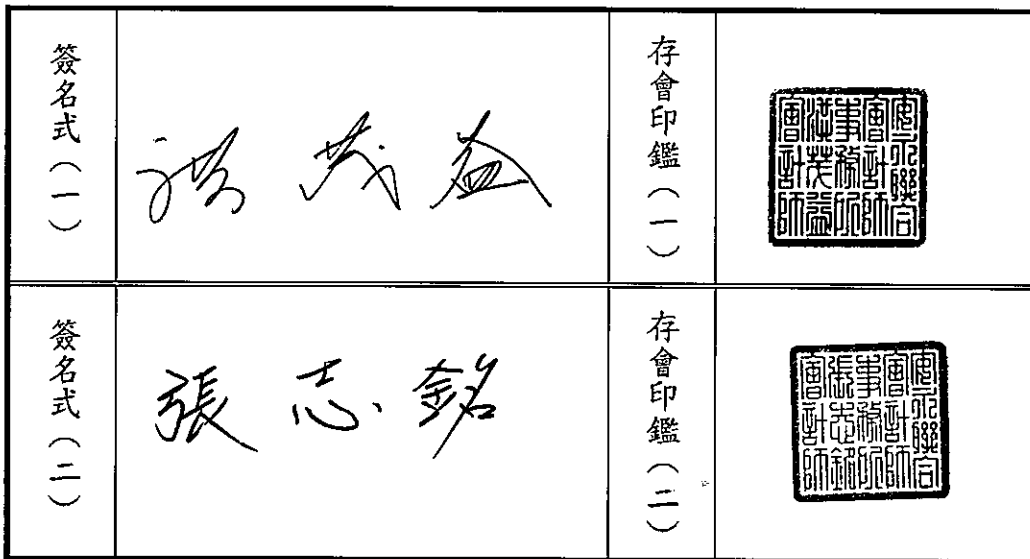 簽名式（一）
洪茂益
存會印鑑（一）
安永聯合
會計師
事務所
洪茂益
會計師
簽名式（二）
張志銘
存會印鑑（二）
安永聯合
會計師
事務所
張志銘
會計師